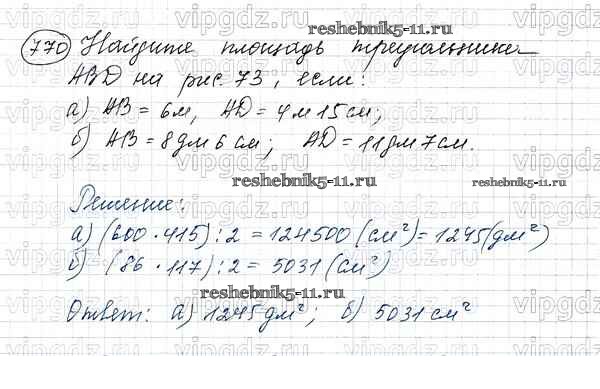 reshebnik5-11.ru
770 Найдите площадь треугольника
ABD на рис. 73, если:
а) AB = 6м, AD = 4м 15см;
б) AB = 8дм 6см; AD = 11дм 7см.
reshebnik5-11.ru
reshebnik5-11.ru
Решение:
а) (600 · 415) : 2 = 124500 (см²) = 1245 (дм²)
б) (86 · 117) : 2 = 5031 (см²)
reshebnik5-11.ru
Ответ: а) 1245 дм²; б) 5031 см²
vipgdz.ru